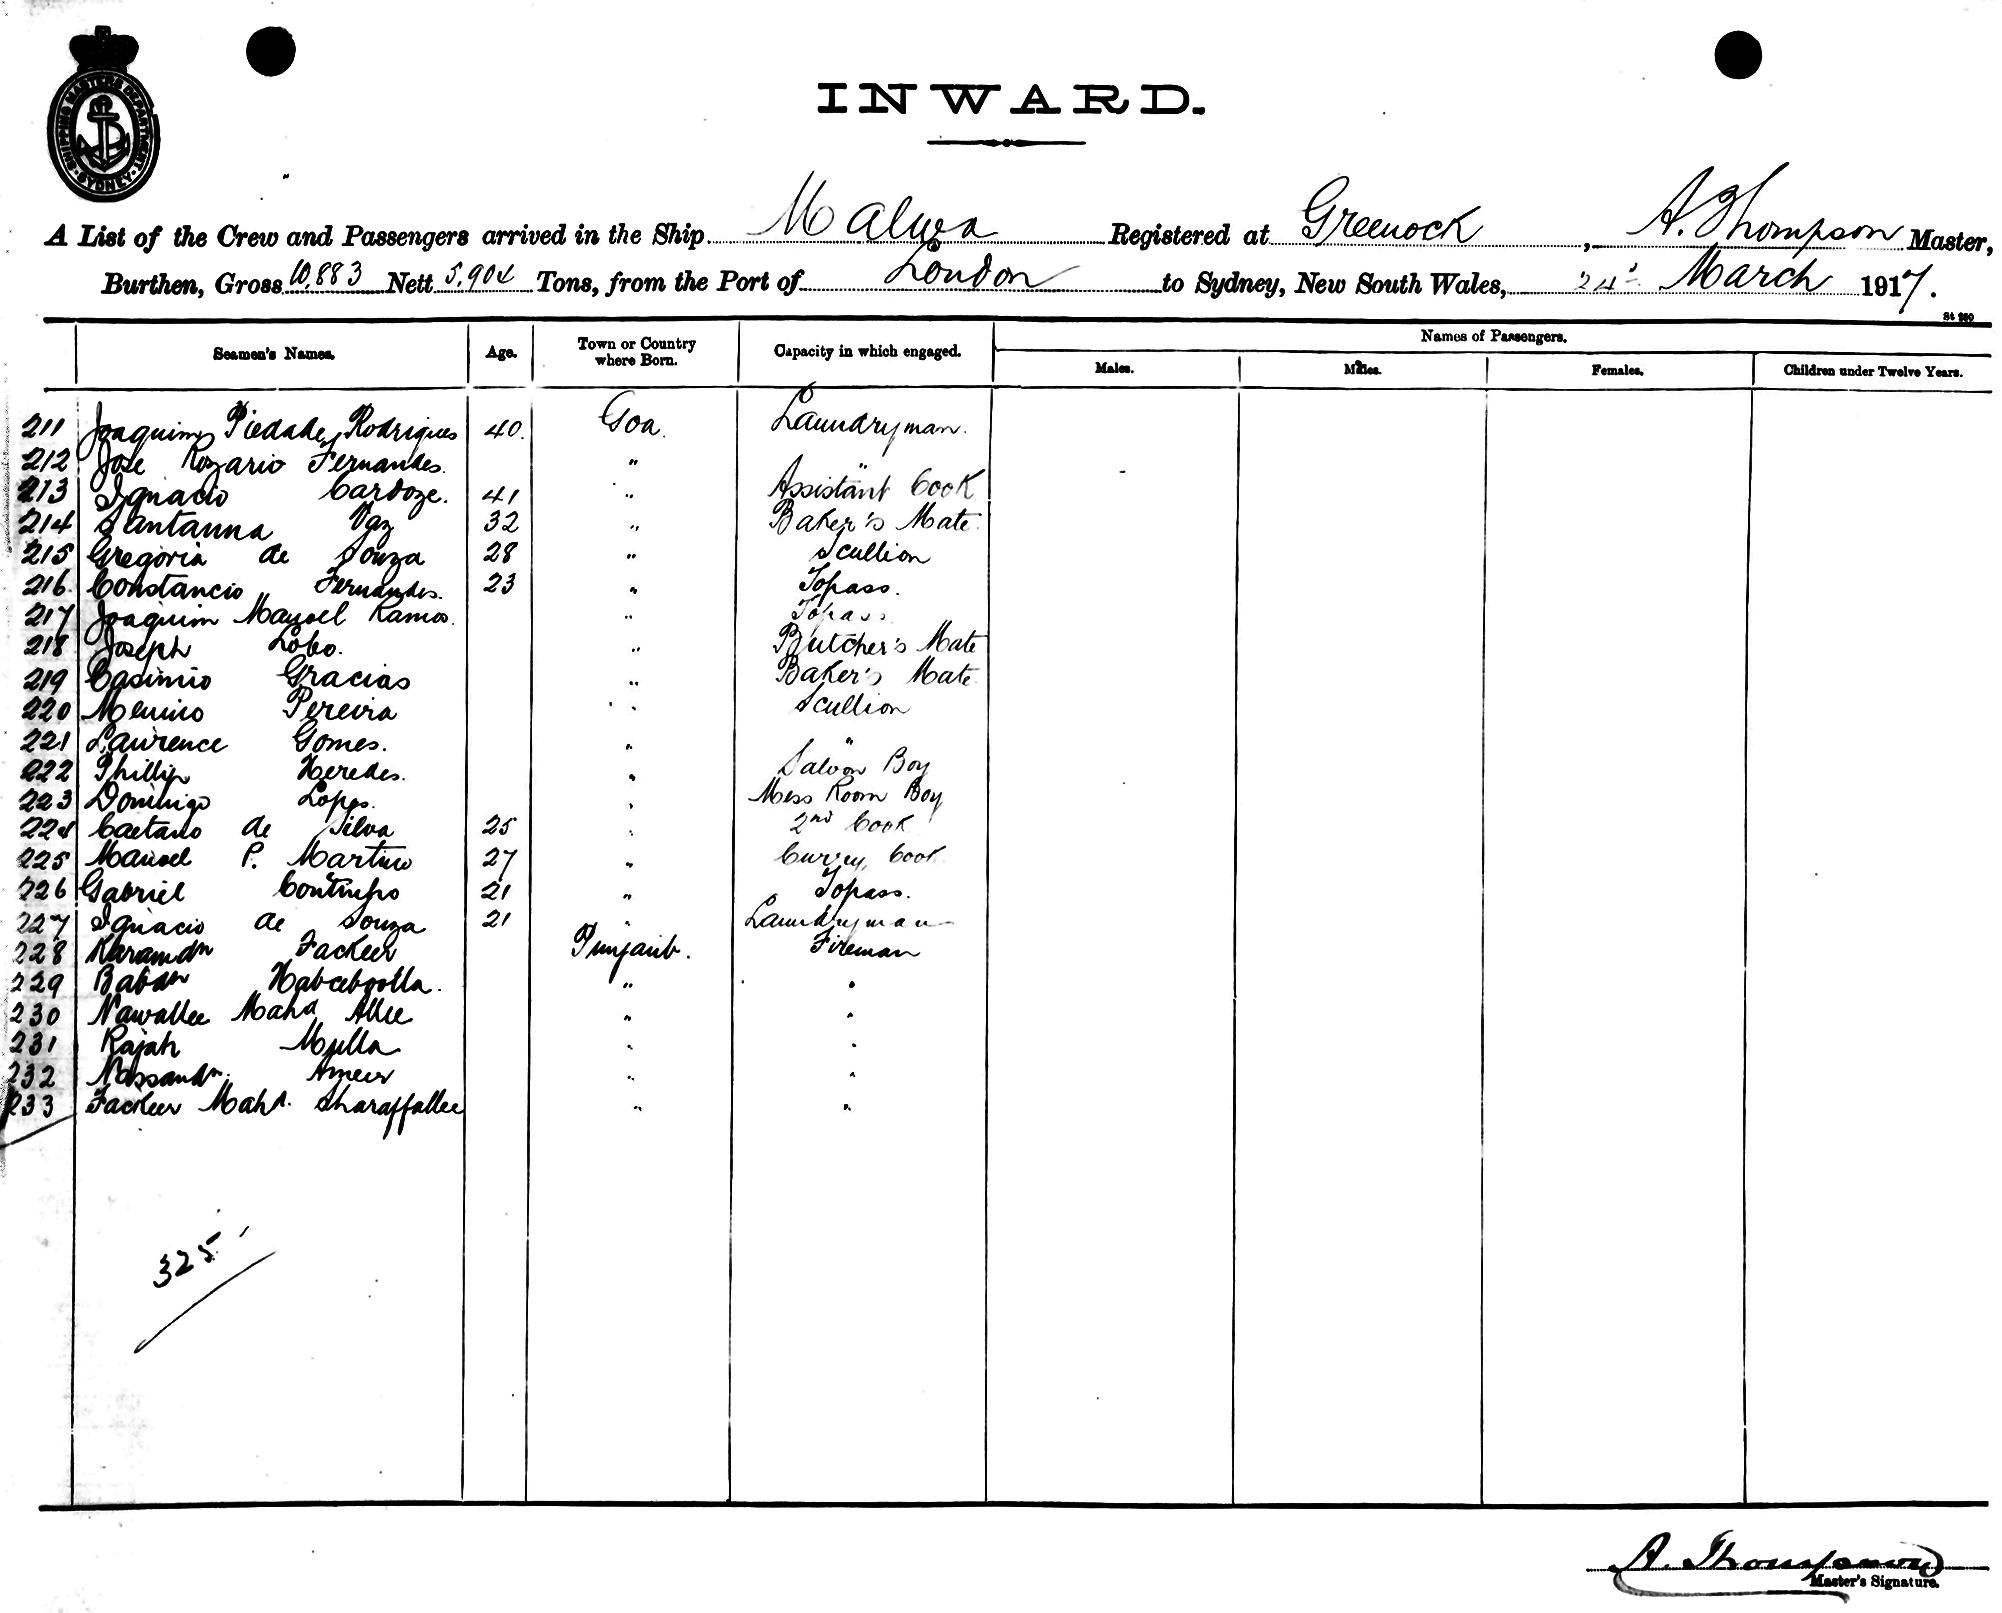 SHIPPING MASTERS DEPARTMENT
SYDNEY
INWARD.
A List of the Crew and Passengers arrived in the Ship Malwa Registered at Greenock, A. Thompson Master,
Burthen, Gross 10,883 Nett 5,904 Tons, from the Port of London to Sydney, New South Wales, 24th March 1917.
St 260
Seamen's Names. Age. Town or Country where Born. Capacity in which engaged. Names of Passengers.
Males. Males. Females. Children under Twelve Years.
211 Joaquim Piedade Rodrigues 40. Goa. Laundryman.
212 Jose Rozario Fernandes. " "
213 Ignacio Cardoze. 41 " Assistant Cook
214 Santanna Vaz 32 " Baker's Mate.
215 Gregoria de Souza 28 " Scullion
216 Constancio Fernandes. 23 " Topass.
217 Joaquim Manoel Ramos. " Topass
218 Joseph Lobo. " Butcher's Mate
219 Casimiro Gracias " Baker's Mate
220 Menino Pereira " Scullion
221 Laurence Gomes. " "
222 Phillip Heredes. " Saloon Boy
223 Domingo Lopes. " Mess Room Boy
224 Caetano de Silva 25 " 2nd Cook
225 Manoel P. Martino 27 " Currey Cook
226 Gabriel Continho 21 " Topass.
227 Ignacio de Souza 21 " Laundryman
228 Karamdn Fackeer Punjaub. Fireman
229 Babdn Habeeboolla. " "
230 Nawallee Mahd Allee " "
231 Rajah Mulla " "
232 Nassandn. Ameer " "
233 Fackeer Mahd. Sharaffallee " "
325
A. Thompson
Master's Signature.